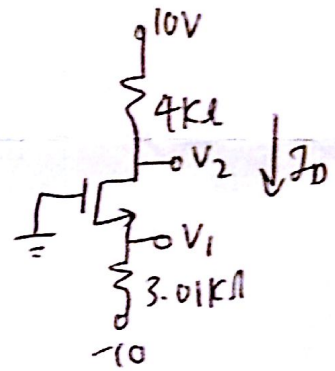 10V
4KΩ
V2
ID
V1
3.01KΩ
-10